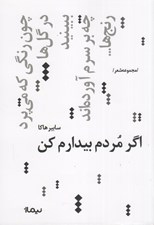 رنج‌ها...
چه بر سرم آورده‌اند
ببینید
در گل‌ها
چون رنگی که می‌پرد
(مجموعه شعر)
سابیر هاکا
اگر مُردم بیدارم کن
نیماژ